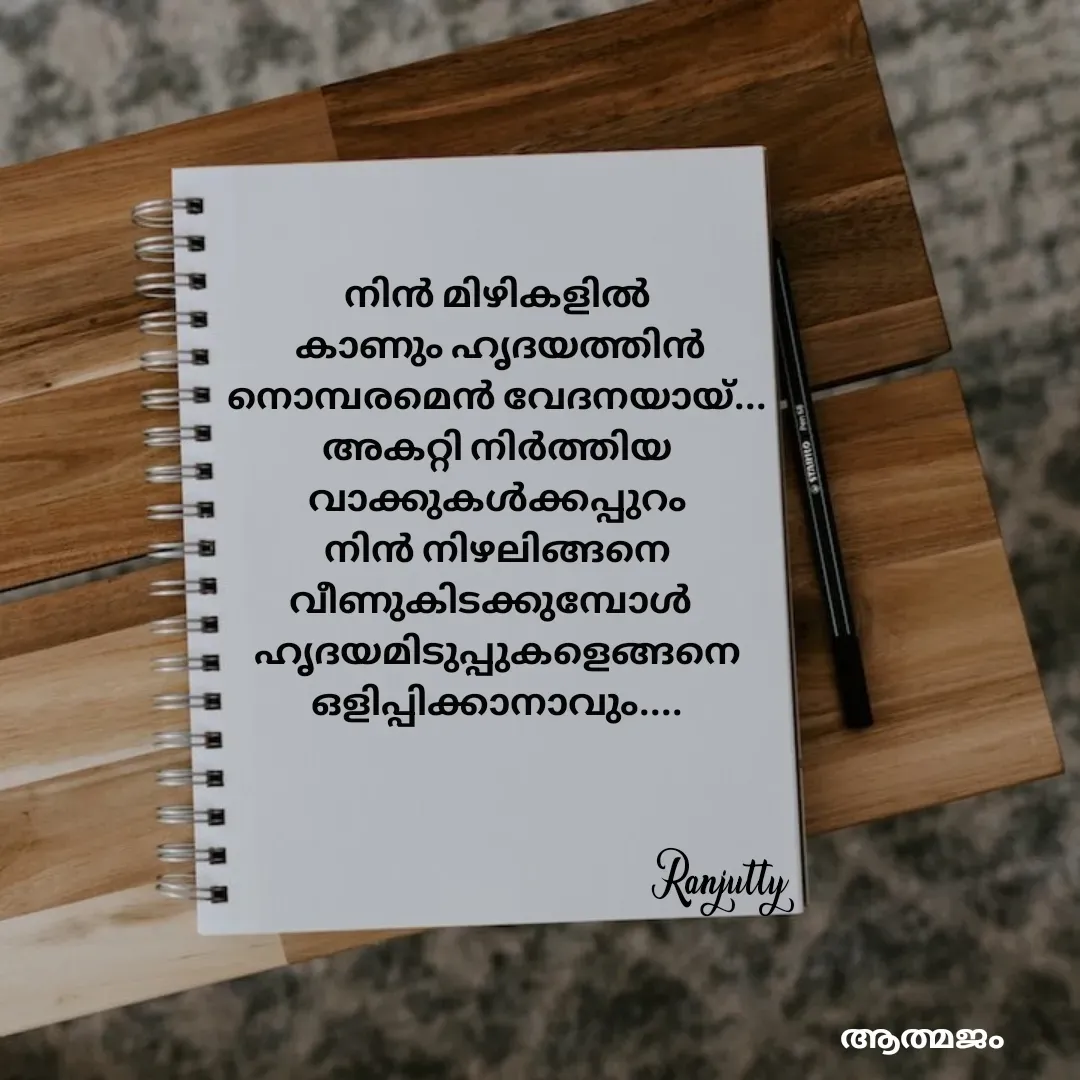 നിൻ മിഴികളിൽ
കാണും ഹൃദയത്തിൻ
നൊമ്പരമെൻ വേദനയായ്...
അകറ്റി നിർത്തിയ
വാക്കുകൾക്കപ്പുറം
നിൻ നിഴലിങ്ങനെ
വീണുകിടക്കുമ്പോൾ
ഹൃദയമിടുപ്പുകളെങ്ങനെ
ഒളിപ്പിക്കാനാവും....
STABILO Pen 68
Ranjutty
ആത്മജം